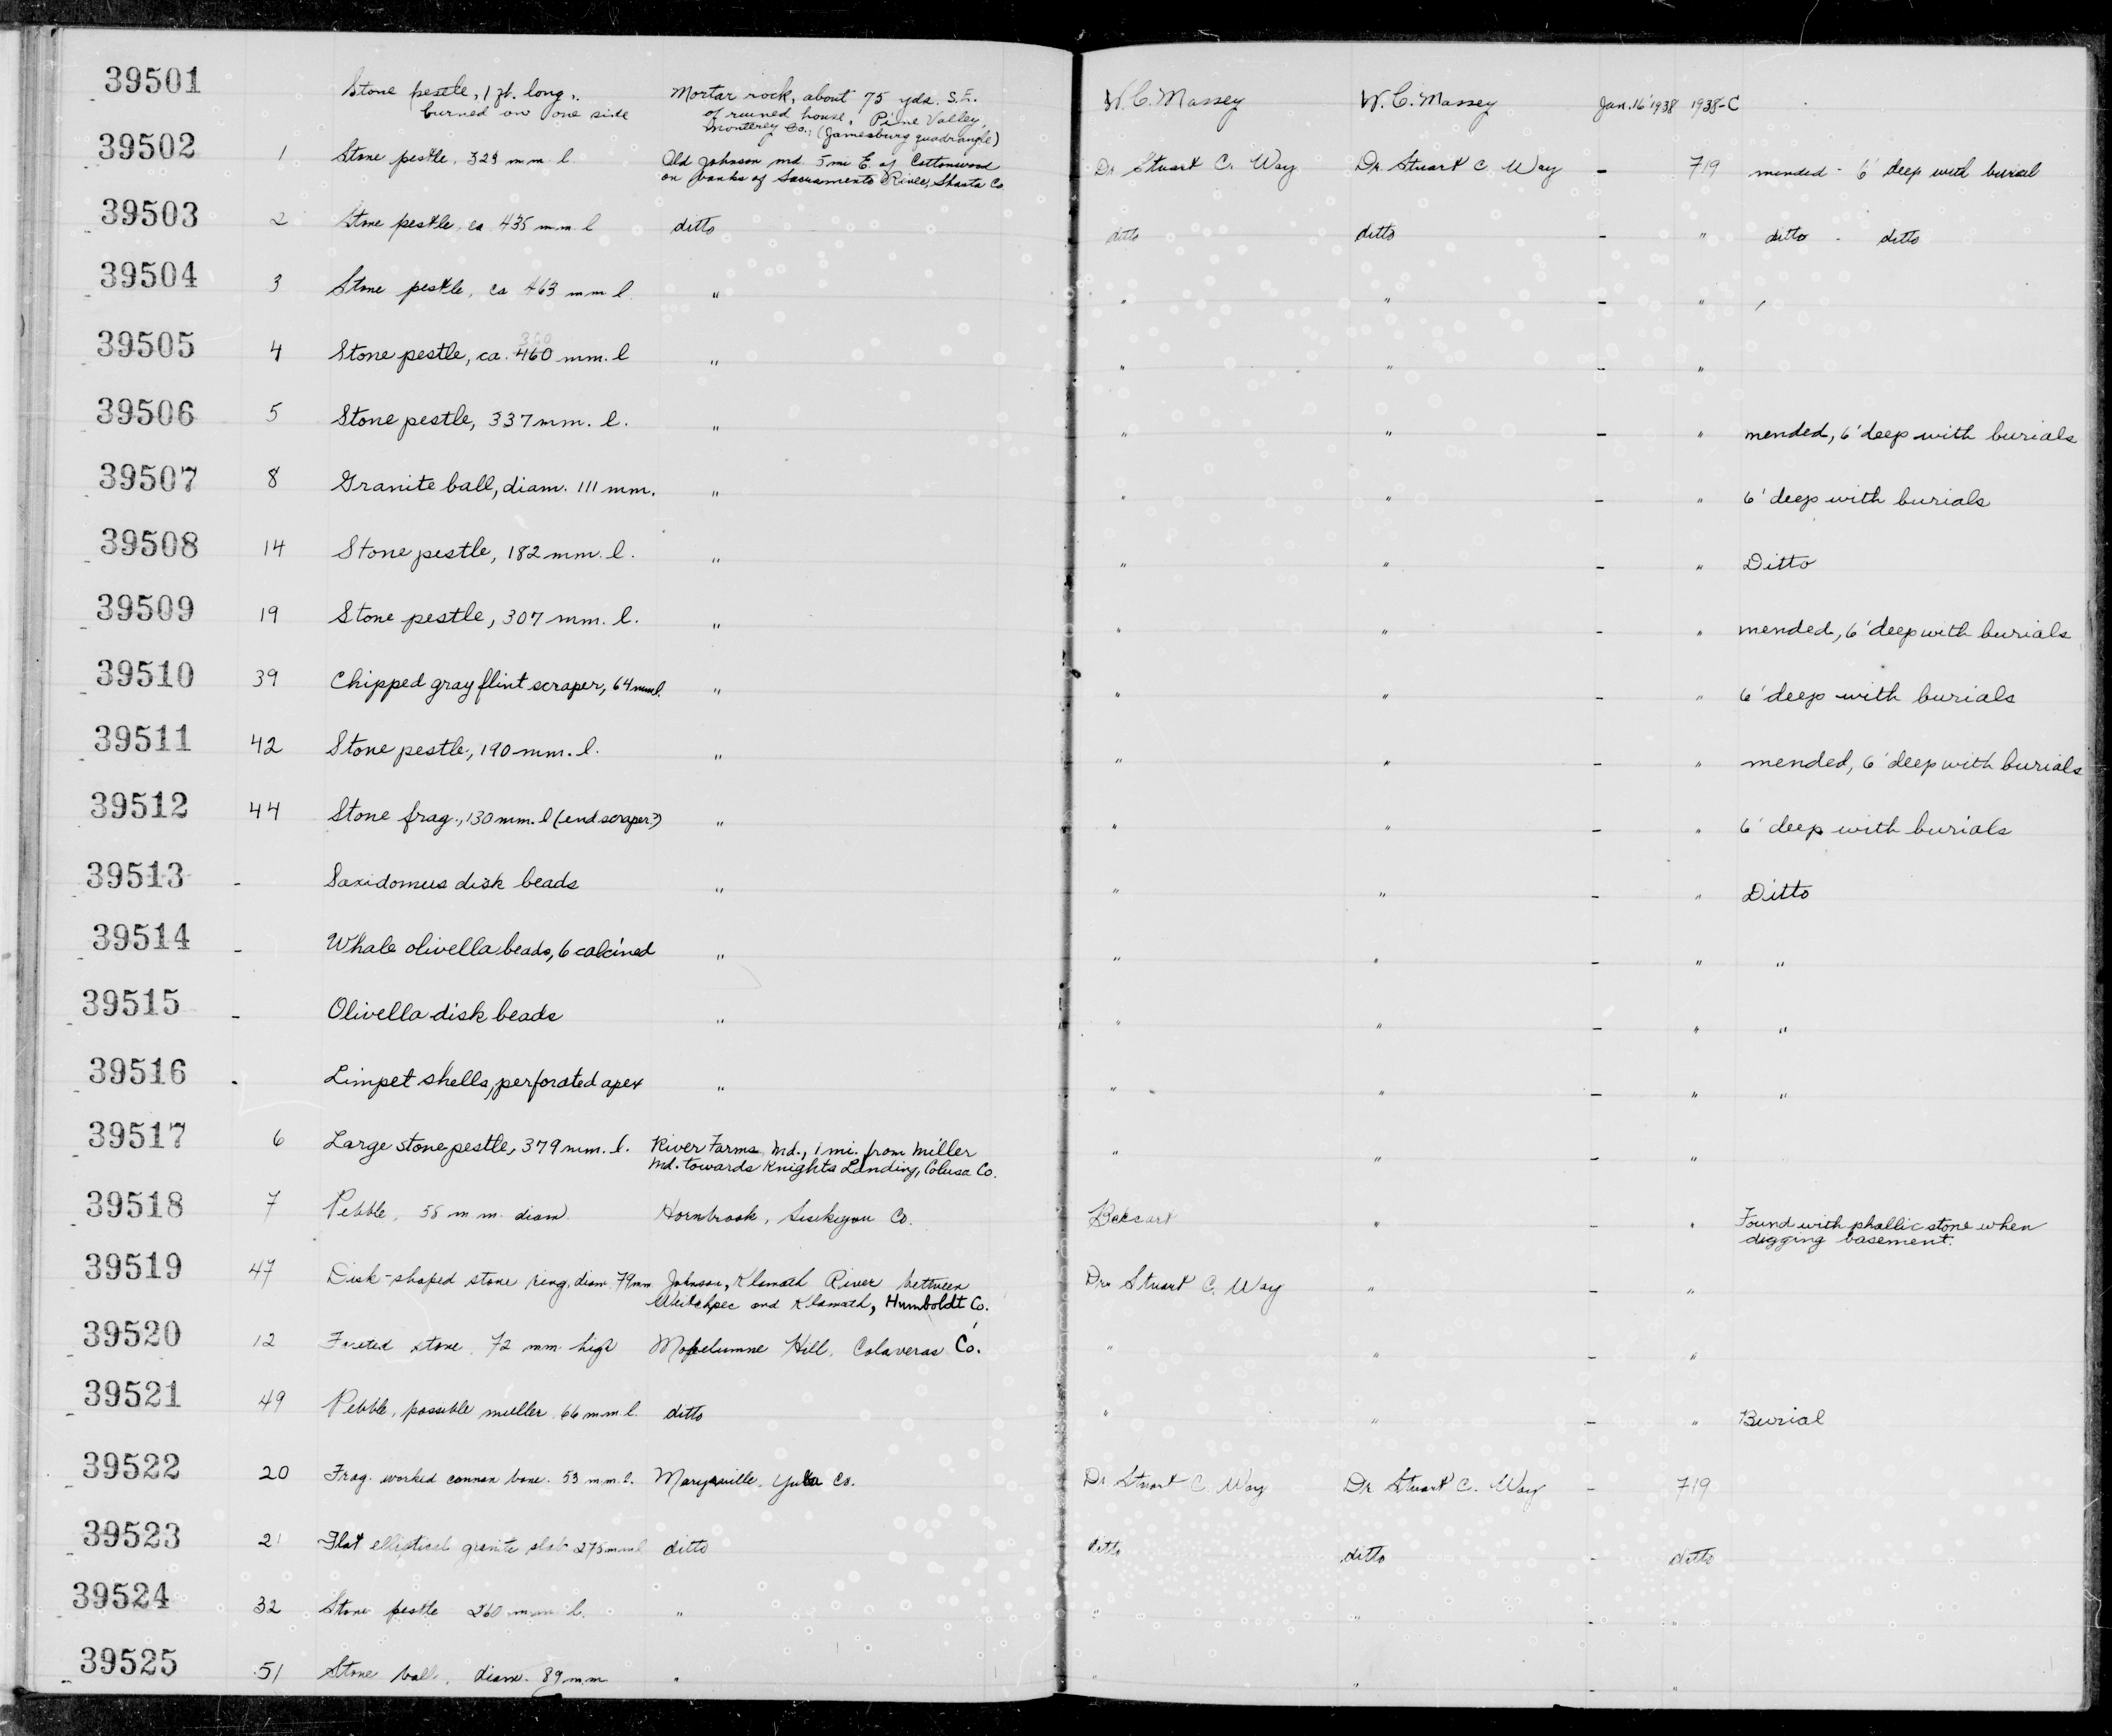 39501 Stone pestle, 1 ft. long, Mortar rock, about 75 yds. S.E. W. C. Massey W. C. Massey Jan. 16 1938 1938-C
burned on one side of ruined house, Pine Valley,
Monterey Co., (Jamesburg quadrangle)
39502 1 Stone pestle, 323 mm l. Old Johnson md. 5 mi E. of Cottonwood Dr Stuart C. Way Dr. Stuart C Way - 719 mended - 6' deep with burial
on banks of Sacramento River, Shasta Co
39503 2 Stone pestle, ca. 435 mm l ditto ditto ditto - " ditto - ditto
39504 3 Stone pestle, ca 463 mm l. " " " - " "
39505 4 Stone pestle, ca. 460 mm. l " " " - "
39506 5 Stone pestle, 337 mm. l. " " " - " mended, 6' deep with burials
39507 8 Granite ball, diam. 111 mm. " " " - " 6' deep with burials
39508 14 Stone pestle, 182 mm. l. " " " - " Ditto
39509 19 Stone pestle, 307 mm. l. " " " - " mended, 6' deep with burials
39510 39 Chipped gray flint scraper, 64 mm l. " " " - " 6' deep with burials
39511 42 Stone pestle, 190 mm. l. " " " - " mended, 6' deep with burials
39512 44 Stone frag., 130 mm. l (end scraper?) " " " - " 6' deep with burials
39513 - Saxidomus disk beads " " " - " Ditto
39514 - Whale olivella beads, 6 calcined " " " - " "
39515 - Olivella disk beads " " " - " "
39516 - Limpet shells, perforated apex " " " - " "
39517 6 Large stone pestle, 379 mm. l. River Farms Md., 1 mi. from Miller " " - "
Md. towards Knights Landing, Colusa Co.
39518 7 Pebble, 58 mm. diam. Hornbrook, Siskiyou Co. " - " Found with phallic stone when
digging basement.
39519 47 Disk-shaped stone ring, diam. 79mm Johnson, Klamath River between Dr. Stuart C. Way " - "
Weitchpec and Klamath, Humboldt Co.
39520 12 Faceted stone, 72 mm. high Mokelumne Hill, Calaveras Co. " " - "
39521 49 Pebble, possible muller, 66 mm l. ditto " " - " Burial
39522 20 Frag. worked cannon bone. 53 mm. l. Marysville, Yuba Co. Dr. Stuart C. Way Dr Stuart C. Way - 719
39523 21 Flat elliptical granite slab 275 mm l ditto ditto ditto - ditto
39524 32 Stone pestle 260 mm l. " " " - "
39525 51 Stone ball, diam. 89 mm " " " - "